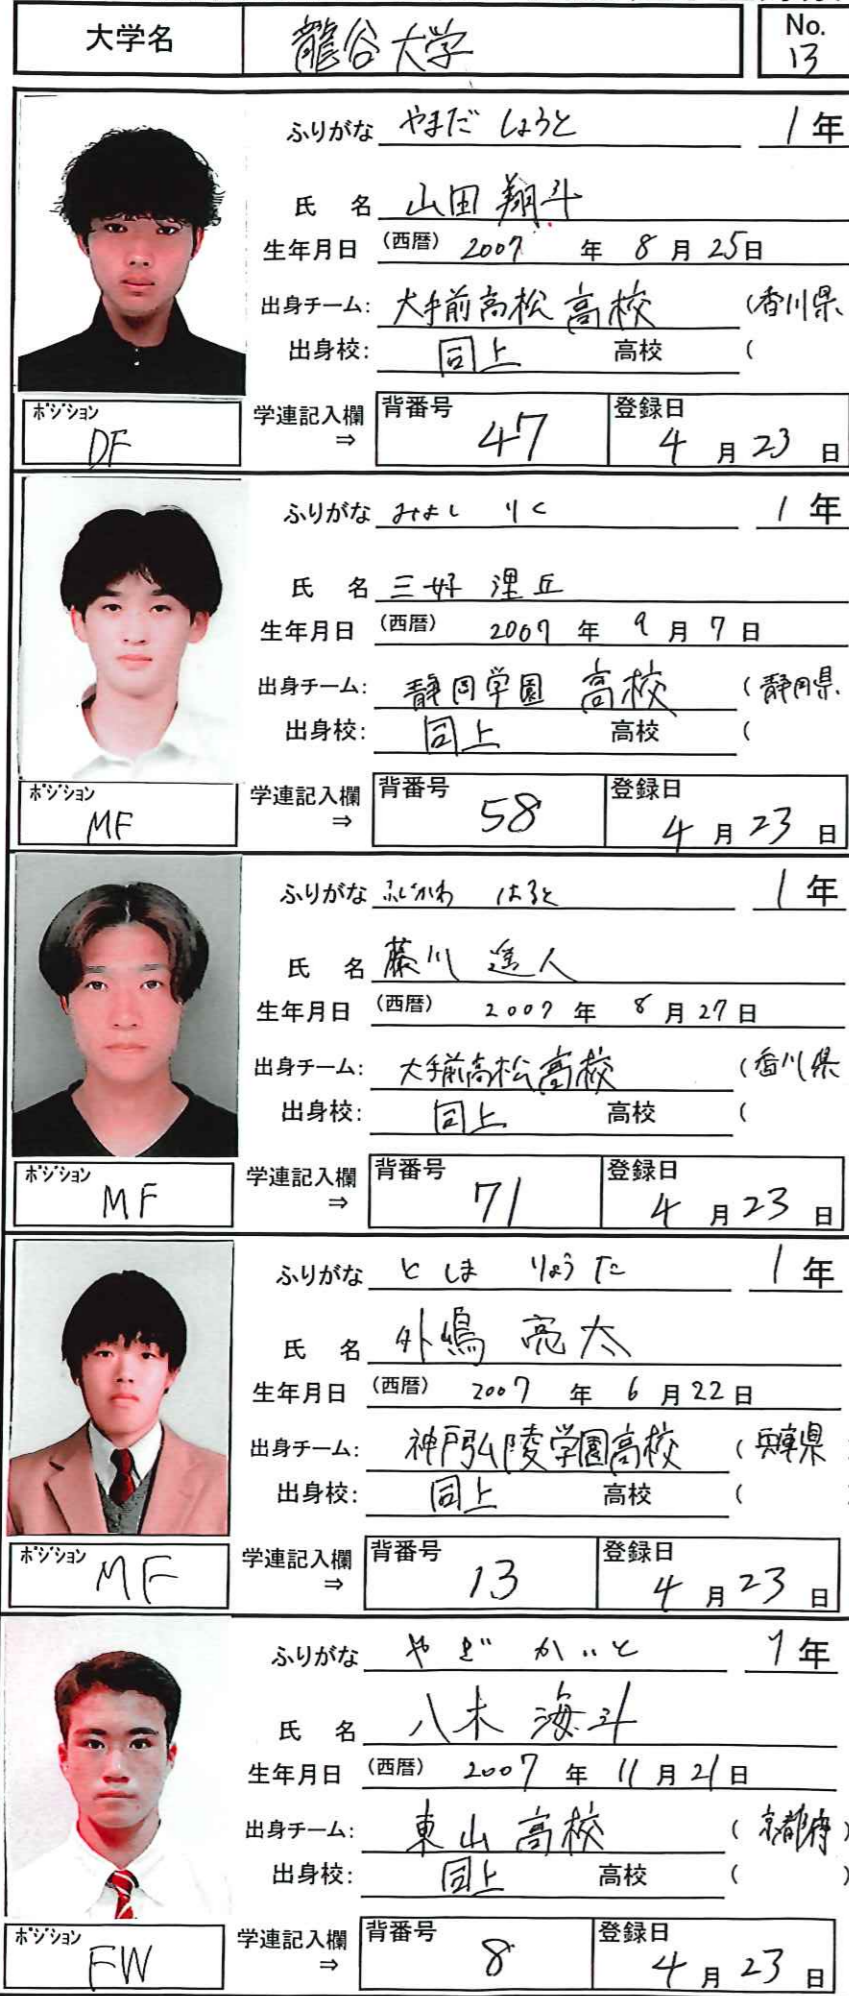 大学名 龍谷大学 No. 13
ふりがな やまだ しょうと 1年
氏 名 山田 翔斗
生年月日 (西暦) 2007 年 8 月 25日
出身チーム: 大手前高松 高校 (香川県
出身校: 同上 高校 (
ポジション DF 学連記入欄 ⇒ 背番号 47 登録日 4 月 23 日
ふりがな みよし りく 1年
氏 名 三好 浬丘
生年月日 (西暦) 2007 年 9 月 7 日
出身チーム: 静岡学園 高校 (静岡県
出身校: 同上 高校 (
ポジション MF 学連記入欄 ⇒ 背番号 58 登録日 4 月 23 日
ふりがな ふじかわ はると 1年
氏 名 藤川 遥人
生年月日 (西暦) 2007 年 8 月 27日
出身チーム: 大手前高松高校 (香川県
出身校: 同上 高校 (
ポジション MF 学連記入欄 ⇒ 背番号 71 登録日 4 月 23 日
ふりがな としま りょうた 1年
氏 名 外嶋 亮太
生年月日 (西暦) 2007 年 6 月 22日
出身チーム: 神戸弘陵学園高校 (兵庫県
出身校: 同上 高校 (
ポジション MF 学連記入欄 ⇒ 背番号 13 登録日 4 月 23 日
ふりがな やぎ かいと 1年
氏 名 八木 海斗
生年月日 (西暦) 2007 年 11 月 21日
出身チーム: 東山高校 (京都府)
出身校: 同上 高校 ( )
ポジション FW 学連記入欄 ⇒ 背番号 8 登録日 4 月 23 日